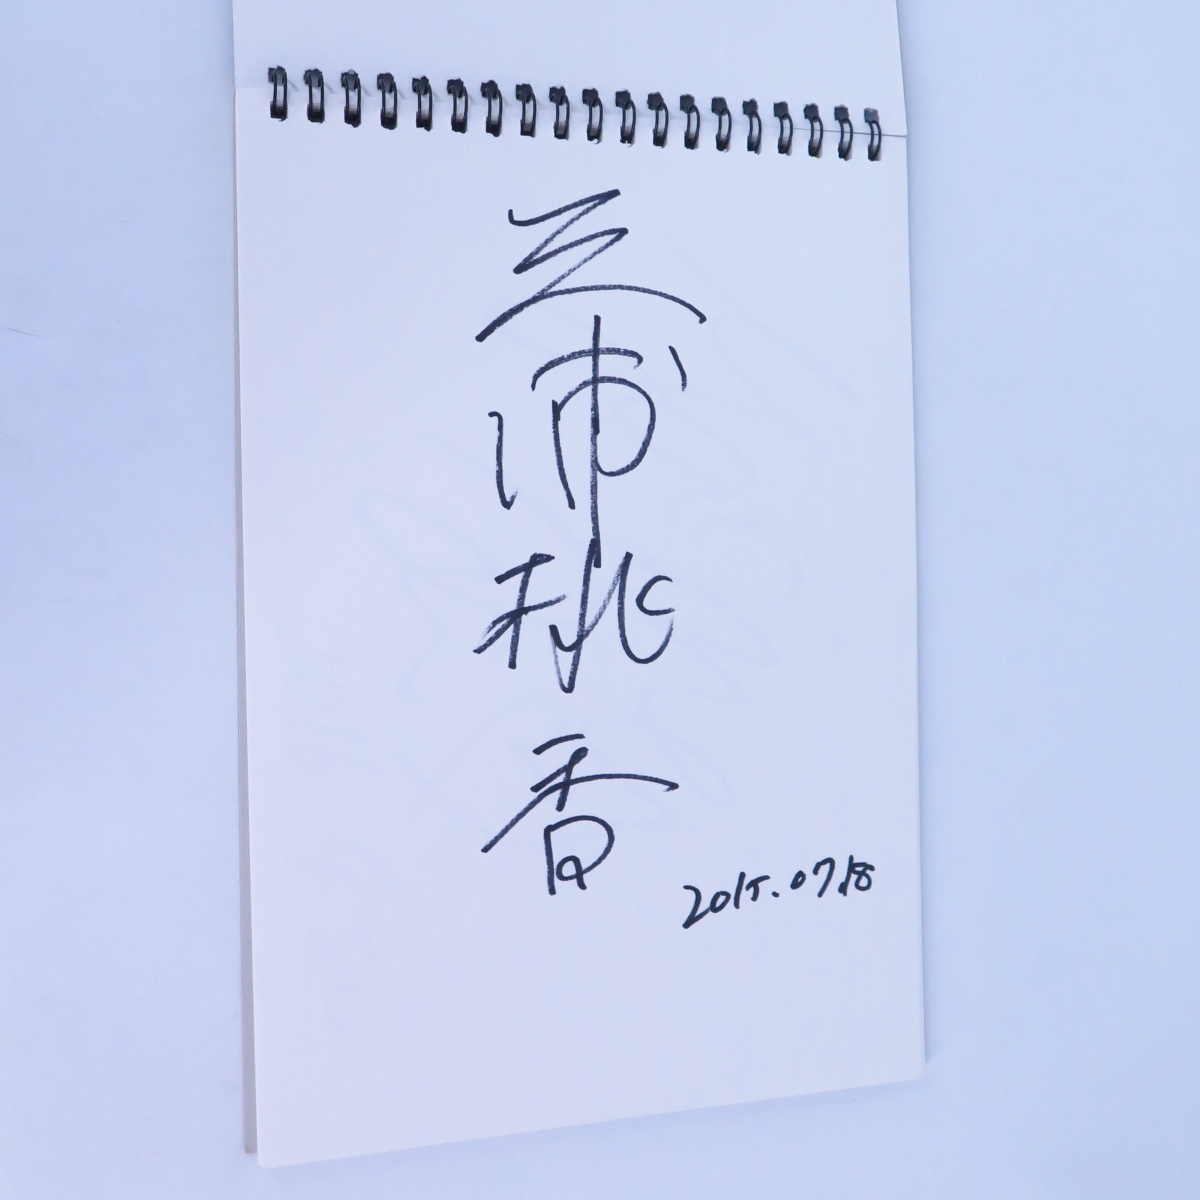 三浦桃香
2015.07.18